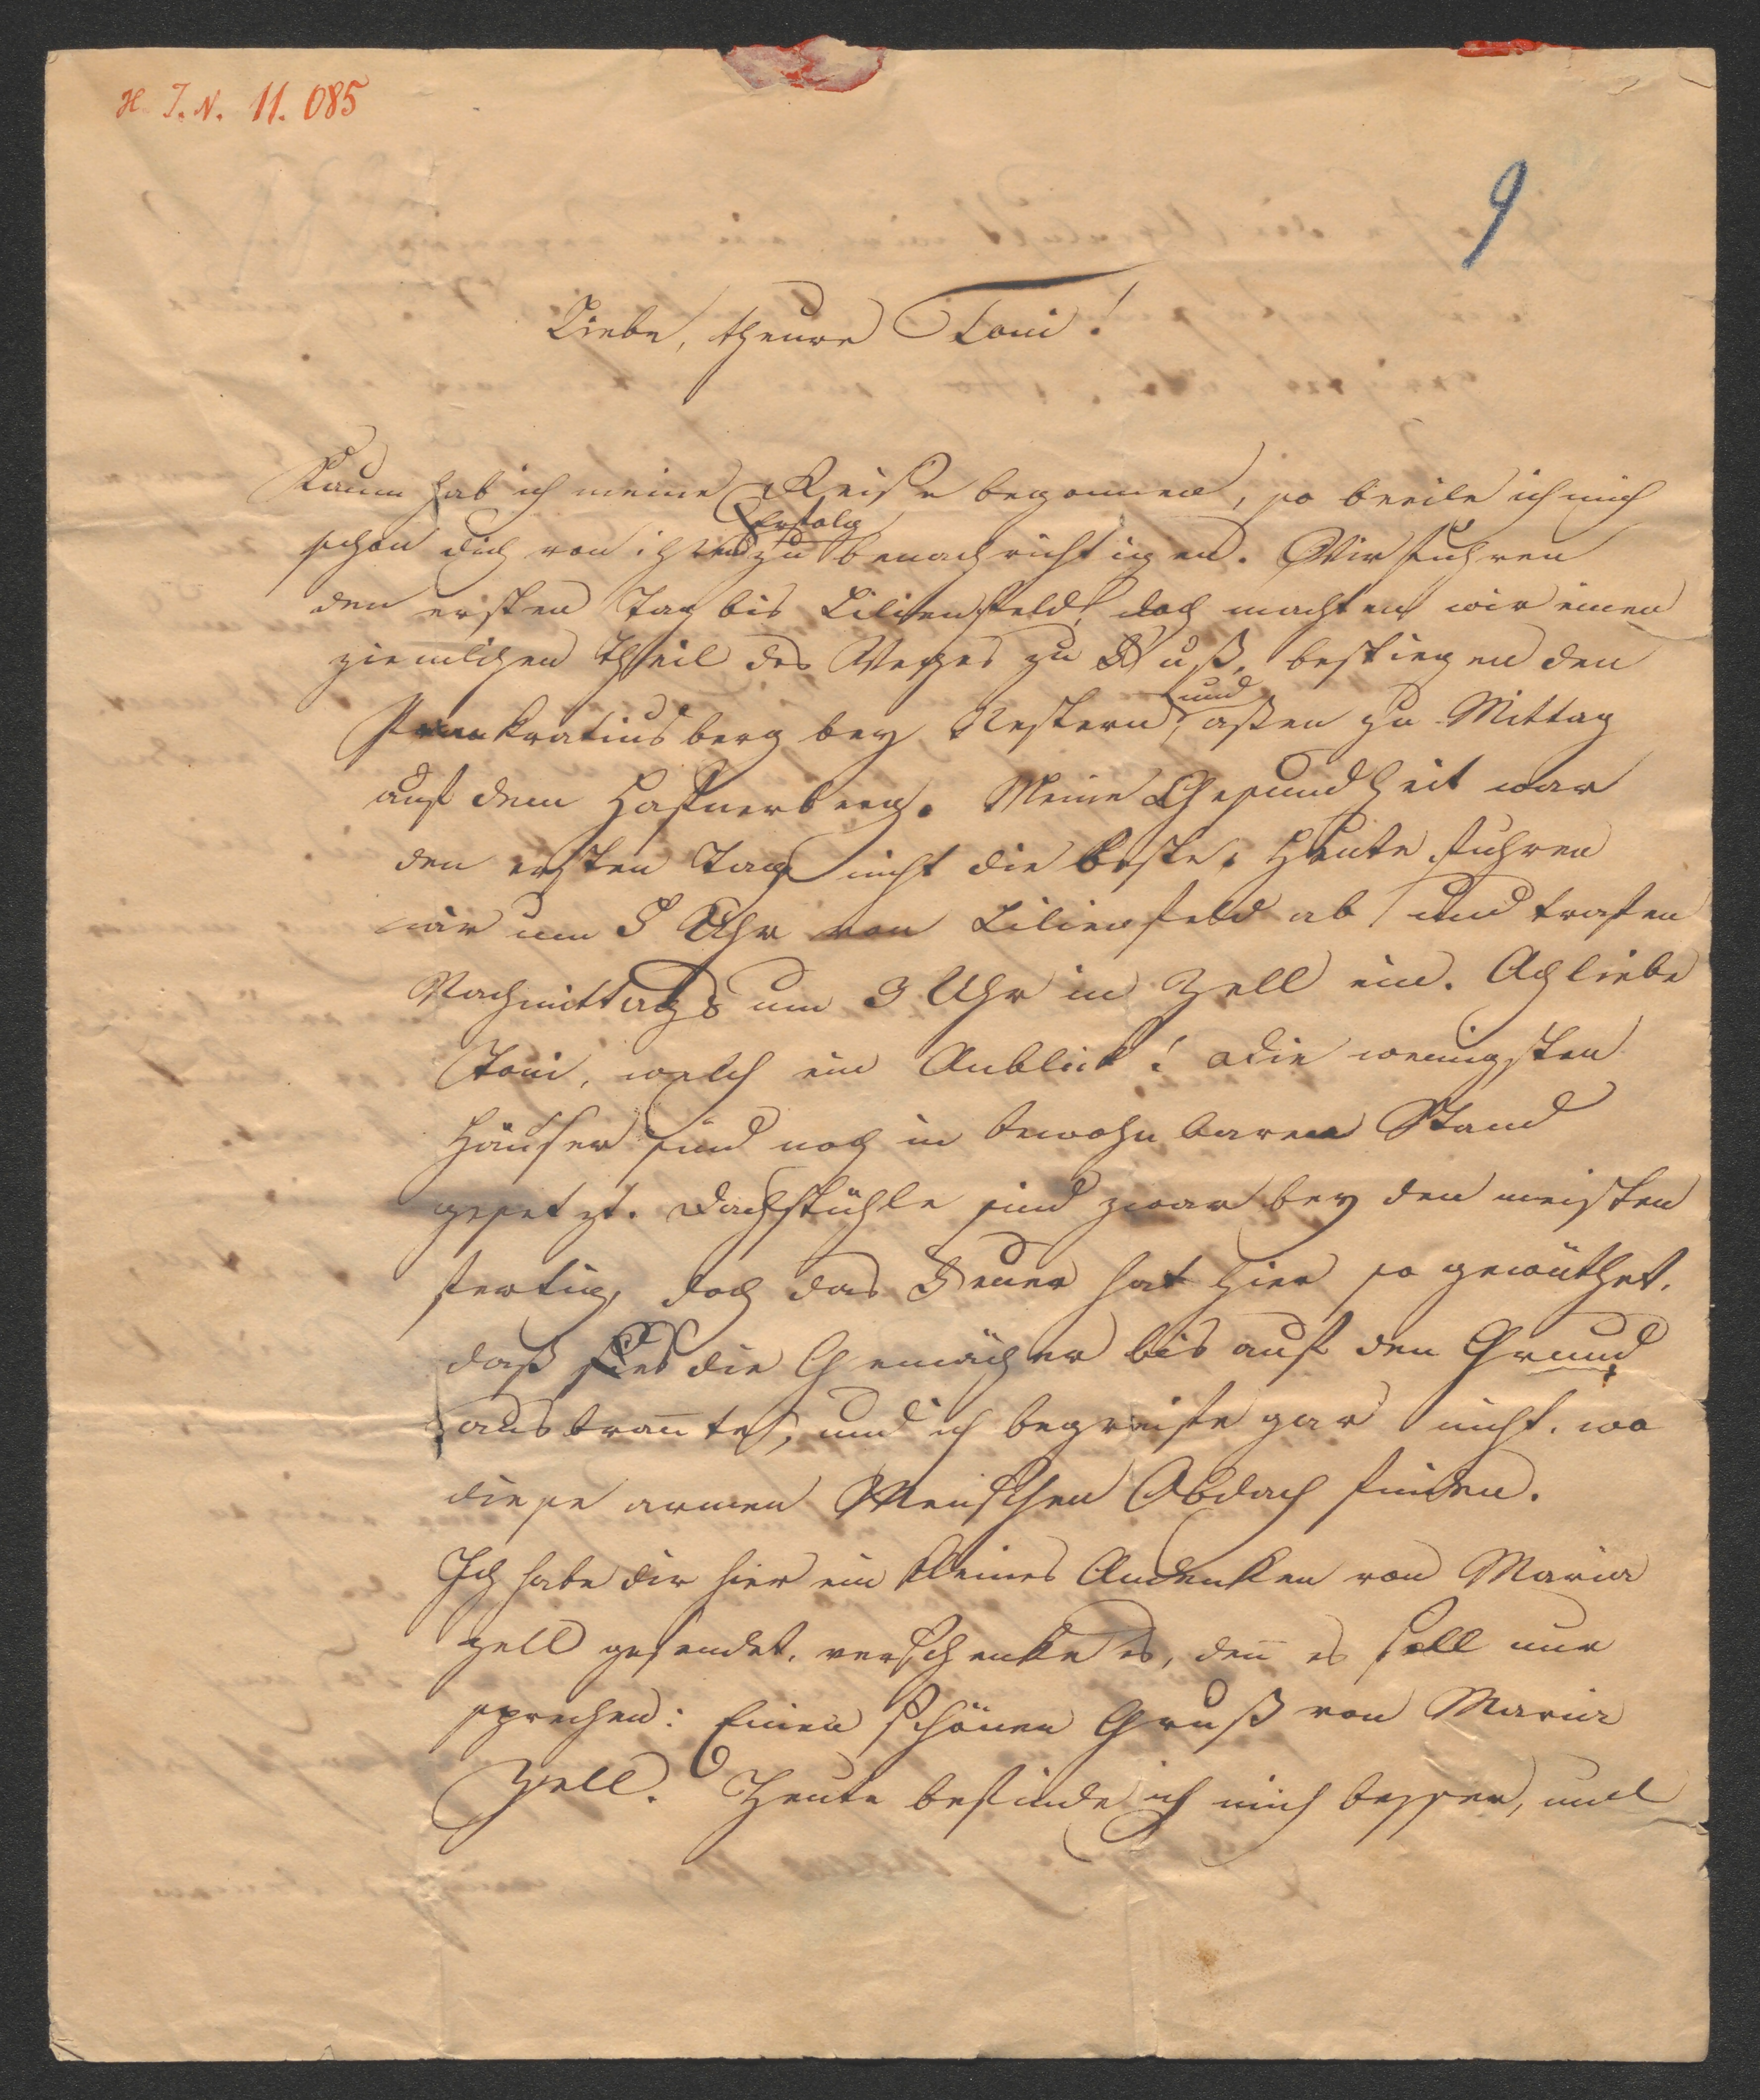 H. I. N. 11.085
9
Liebe, theure Toni!
Kaum hab ich meine Reise begonnen, so beeile ich mich
schon dich von ihren Erfolg zu benachrichtigen. Wir fuhren
den ersten Tag bis Lilienfeld, doch machten wir einen
ziemlichen Theil des Weges zu Fuß, bestiegen den
Pankratiusberg bey Nestern, und aßen zu Mittag
auf dem Hafnerberg. Meine Gesundheit war
den ersten Tag nicht die beste. Heute fuhren
wir um 5 Uhr von Lilienfeld ab und trafen
Nachmittags um 3 Uhr in Zell ein. Ach liebe
Toni, welch ein Anblick! die wenigsten
Häuser sind noch in bewohnbaren Stand
gesetzt. Dachstühle sind zwar bey den meisten
fertig, doch das Feuer hat hier so gewüthet,
daß es die Gemächer bis auf den Grund
ausbran̄te, und ich begreife gar nicht, wo
diese armen Menschen Obdach finden.
Ich habe dir hier ein kleines Andenken von Maria
zell gesendet, verschenke es, den̄ es soll nur
sprechen: Einen schönen Gruß von Maria
Zell. Heute befinde ich mich besser, und